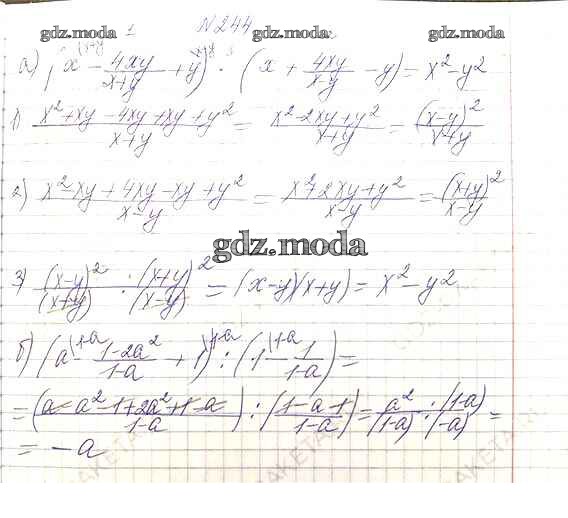 N244
gdz.moda gdz.moda gdz.moda
а) (x - 4xy/x+y + y) · (x + 4xy/x-y - y) = x² - y²
1) x² + xy - 4xy + xy + y² / x+y = x² - 2xy + y² / x+y = (x-y)² / x+y
2) x² - xy + 4xy - xy + y² / x-y = x² + 2xy + y² / x-y = (x+y)² / x-y
gdz.moda
3) (x-y)² / (x+y) · (x+y)² / (x-y) = (x-y)(x+y) = x² - y²
б) (a - 1-2a² / 1-a + 1) : (1 - 1 / 1-a) =
= (a - a² - 1 + 2a² + 1 - a / 1-a) : (1-a-1 / 1-a) = a² · (1-a) / (1-a) · (-a) =
= -a